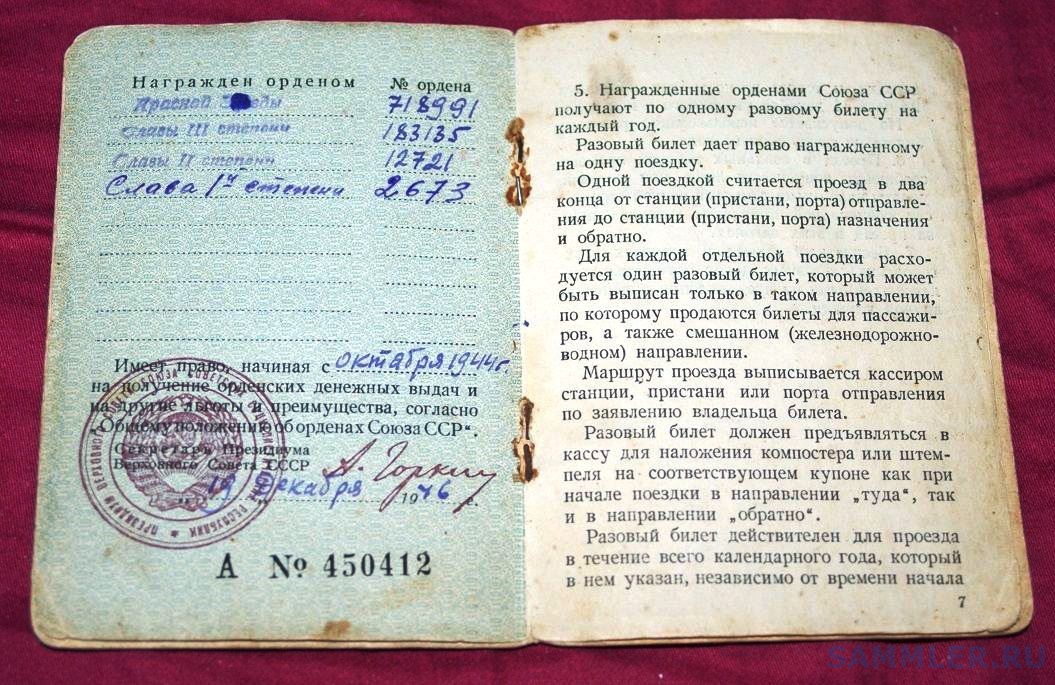 Награжден орденом № ордена
Красной Звезды 718991
Славы III степени 183135
Славы II степени 12721
Слава Iй степени 2673
Имеет право, начиная с октября 1944 г.
на получение орденских денежных выдач и
на другие льготы и преимущества, согласно
„Общему положению об орденах Союза ССР“.
Секретарь Президиума
Верховного Совета СССР А. Горкин
19 декабря 1946 г.
А № 450412
5. Награжденные орденами Союза ССР
получают по одному разовому билету на
каждый год.
Разовый билет дает право награжденному
на одну поездку.
Одной поездкой считается проезд в два
конца от станции (пристани, порта) отправле-
ния до станции (пристани, порта) назначения
и обратно.
Для каждой отдельной поездки расхо-
дуется один разовый билет, который может
быть выписан только в таком направлении,
по которому продаются билеты для пассажи-
ров, а также смешанном (железнодорожно-
водном) направлении.
Маршрут проезда выписывается кассиром
станции, пристани или порта отправления
по заявлению владельца билета.
Разовый билет должен предъявляться в
кассу для наложения компостера или штем-
пеля на соответствующем купоне как при
начале поездки в направлении „туда“, так
и в направлении „обратно“.
Разовый билет действителен для проезда
в течение всего календарного года, который
в нем указан, независимо от времени начала
7
SAMMLER.RU